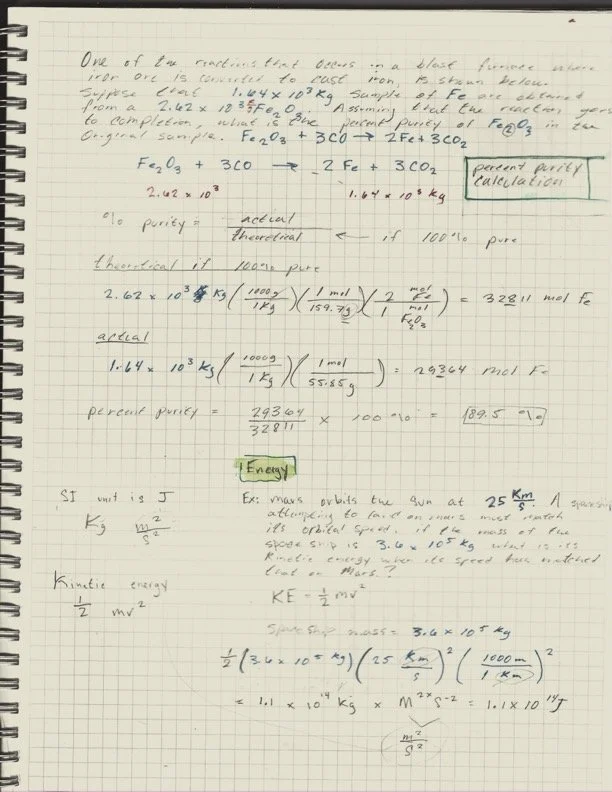 One of the reactions that occurs in a blast furnace where
iron ore is converted to cast iron, is shown below.
Suppose that 1.64 x 10³ Kg sample of Fe are obtained
from a 2.62 x 10³ Fe₂O₃. Assuming that the reaction goes
to completion, what is the percent purity of Fe₂O₃ in the
original sample. Fe₂O₃ + 3CO → 2Fe + 3CO₂
Fe₂O₃ + 3CO → 2 Fe + 3CO₂
percent purity
calculation
2.62 x 10³ 1.64 x 10³ Kg
% purity = actual / theoretical ← if 100% pure
theoretical if 100% pure
2.62 x 10³ Kg (1000g / 1Kg) (1 mol / 159.7g) (2 mol Fe / 1 mol Fe₂O₃) = 32811 mol Fe
actual
1.64 x 10³ Kg (1000g / 1Kg) (1 mol / 55.85g) = 29364 mol Fe
percent purity = 29364 / 32811 x 100% = 89.5 %
Energy
SI unit is J
Kg m² / s²
Kinetic energy
1/2 mv²
Ex: mars orbits the sun at 25 Km/s. A spaceship
attempting to land on mars must match
its orbital speed. if the mass of the
space ship is 3.6 x 10⁵ Kg what is its
Kinetic energy when its speed has matched
that on Mars?
KE = 1/2 mv²
space ship mass = 3.6 x 10⁵ Kg
1/2 (3.6 x 10⁵ Kg) (25 Km / s)² (1000m / 1 Km)²
= 1.1 x 10¹⁴ Kg x M² x S⁻² = 1.1 x 10¹⁴ J
m² / s²